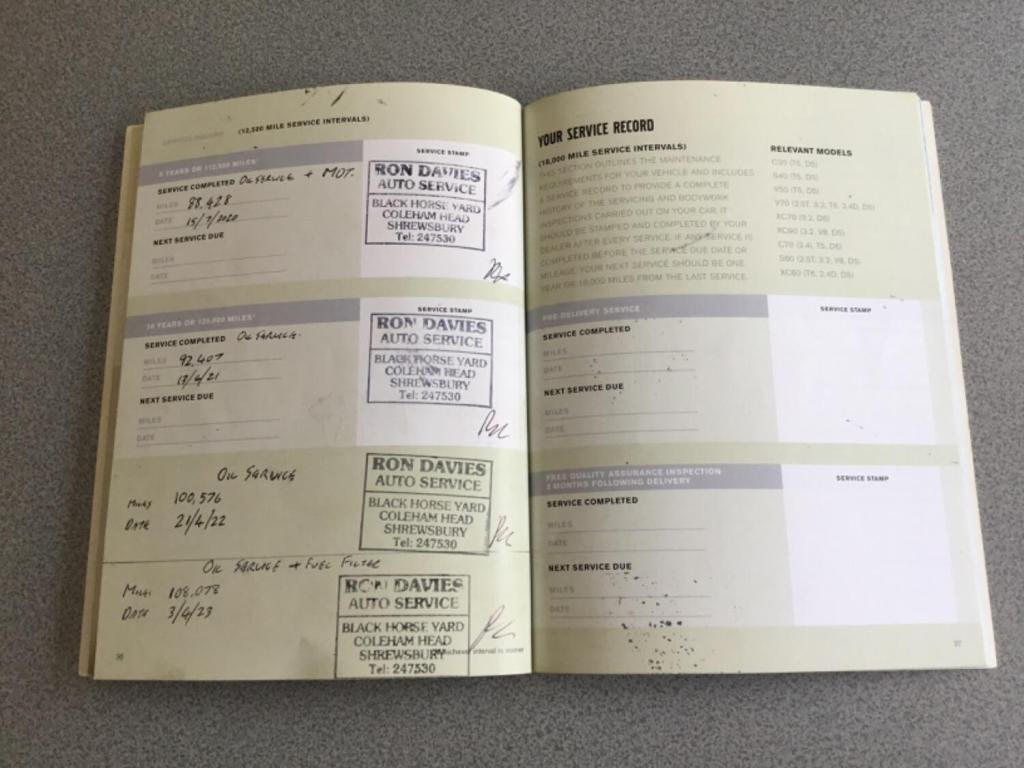 SERVICE RECORD (12,500 MILE SERVICE INTERVALS)
9 YEARS OR 112,500 MILES*
SERVICE COMPLETED OIL SERVICE + MOT.
MILES 88,428
DATE 15/7/2020
NEXT SERVICE DUE
MILES
DATE
SERVICE STAMP
RON DAVIES
AUTO SERVICE
BLACK HORSE YARD
COLEHAM HEAD
SHREWSBURY
Tel: 247530
10 YEARS OR 125,000 MILES*
SERVICE COMPLETED OIL SERVICE.
MILES 92,407
DATE
NEXT SERVICE DUE
MILES
DATE
SERVICE STAMP
RON DAVIES
AUTO SERVICE
BLACK HORSE YARD
COLEHAM HEAD
SHREWSBURY
Tel: 247530
OIL SERVICE
MILES 100,576
DATE 21/4/22
RON DAVIES
AUTO SERVICE
BLACK HORSE YARD
COLEHAM HEAD
SHREWSBURY
Tel: 247530
OIL SERVICE + FUEL FILTER
MILES 108,078
DATE 3/4/23
RON DAVIES
AUTO SERVICE
BLACK HORSE YARD
COLEHAM HEAD
SHREWSBURY
Tel: 247530
interval is sooner
96
YOUR SERVICE RECORD
(18,000 MILE SERVICE INTERVALS)
THIS SECTION OUTLINES THE MAINTENANCE
REQUIREMENTS FOR YOUR VEHICLE AND INCLUDES
A SERVICE RECORD TO PROVIDE A COMPLETE
HISTORY OF THE SERVICING AND BODYWORK
INSPECTIONS CARRIED OUT ON YOUR CAR. IT
SHOULD BE STAMPED AND COMPLETED BY YOUR
DEALER AFTER EVERY SERVICE. IF ANY SERVICE IS
COMPLETED BEFORE THE SERVICE DUE DATE OR
MILEAGE, YOUR NEXT SERVICE SHOULD BE ONE
YEAR OR 18,000 MILES FROM THE LAST SERVICE.
RELEVANT MODELS
C30 (T5, D5)
S40 (T5, D5)
V50 (T5, D5)
V70 (2.5T, 3.2, T6, 2.4D, D5)
XC70 (3.2, D5)
XC90 (3.2, V8, D5)
C70 (2.4i, T5, D5)
S80 (2.5T, 3.2, V8, D5)
XC60 (T6, 2.4D, D5)
PRE-DELIVERY SERVICE
SERVICE COMPLETED
MILES
DATE
NEXT SERVICE DUE
MILES
DATE
SERVICE STAMP
FREE QUALITY ASSURANCE INSPECTION
3 MONTHS FOLLOWING DELIVERY
SERVICE COMPLETED
MILES
DATE
NEXT SERVICE DUE
MILES
DATE
SERVICE STAMP
97